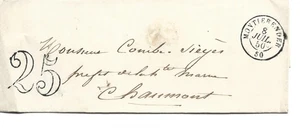 MONTIERENDER
8
JUIL.
50
50
25
Monsieur Combe-Siéyès
préfet de la hte marne
Chaumont